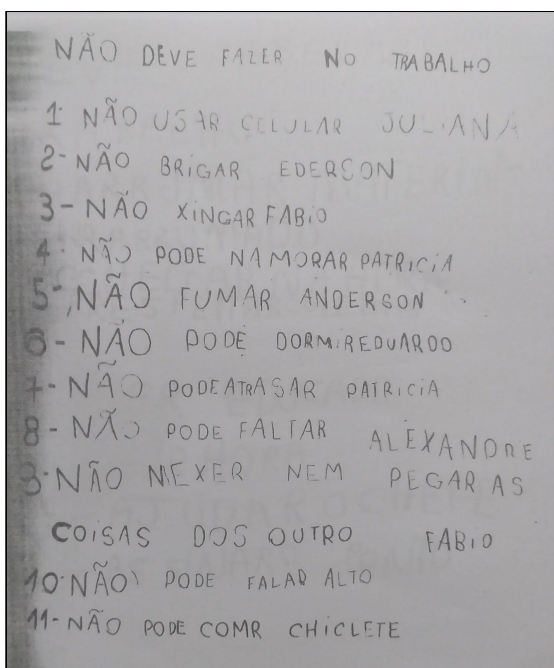 NÃO DEVE FAZER NO TRABALHO
1- NÃO USAR CELULAR JULIANA
2- NÃO BRIGAR EDERSON
3- NÃO XINGAR FABIO
4- NÃO PODE NAMORAR PATRICIA
5- NÃO FUMAR ANDERSON
6- NÃO PODE DORMIR EDUARDO
7- NÃO PODE ATRASAR PATRICIA
8- NÃO PODE FALTAR ALEXANDRE
9- NÃO MEXER NEM PEGAR AS
COISAS DOS OUTRO FABIO
10- NÃO PODE FALAR ALTO
11- NÃO PODE COMR CHICLETE